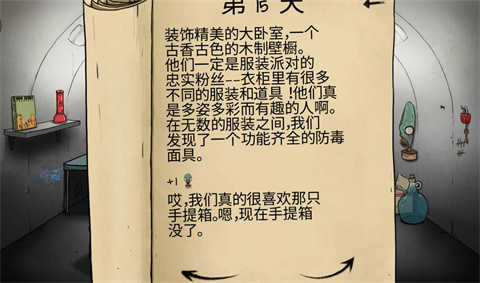 第 15 天
装饰精美的大卧室,一个
古香古色的木制壁橱。
他们一定是服装派对的
忠实粉丝--衣柜里有很多
不同的服装和道具!他们真
是多姿多彩而有趣的人啊。
在无数的服装之间,我们
发现了一个功能齐全的防毒
面具。
+1
哎,我们真的很喜欢那只
手提箱。嗯,现在手提箱
没了。